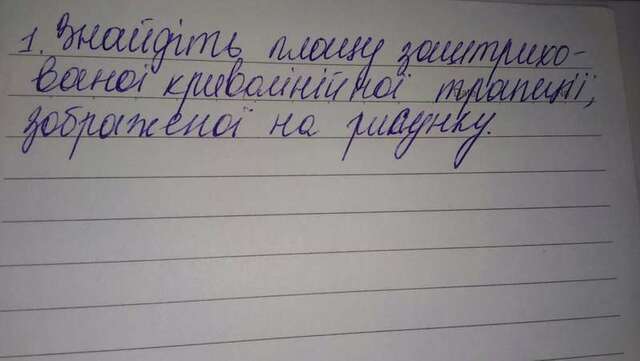 1. Знайдіть площу заштрихо-
ваної криволінійної трапеції,
зображеної на рисунку.